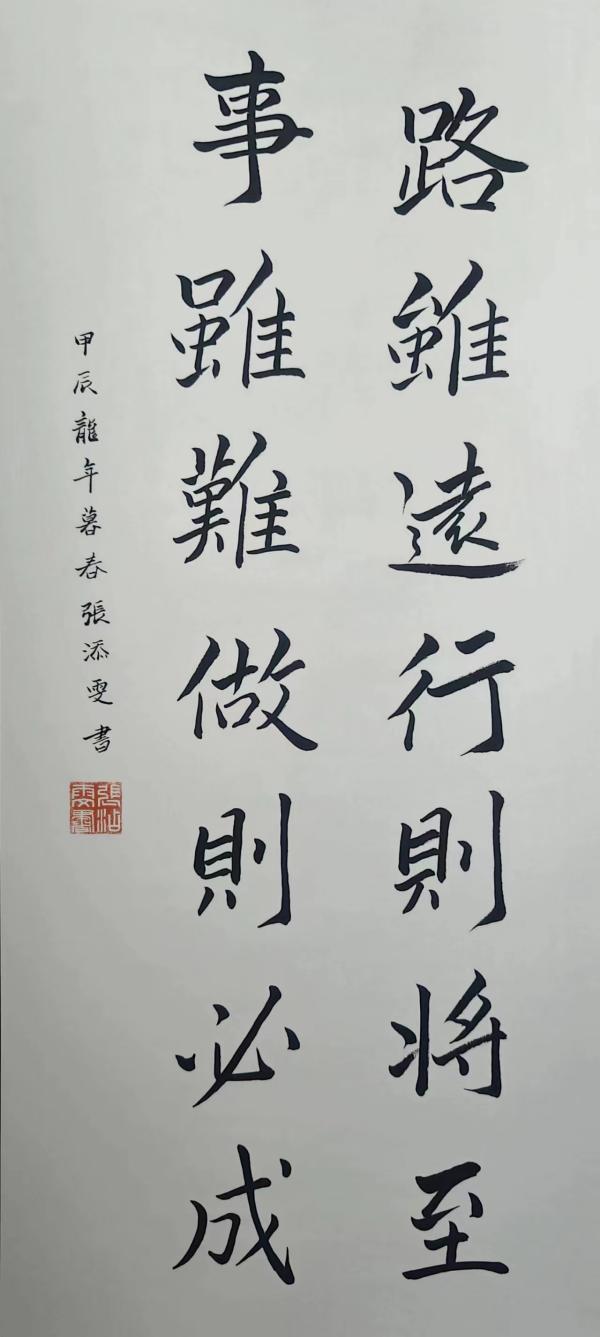 路雖遠行則将至
事雖難做則必成
甲辰龍年暮春張添雯書